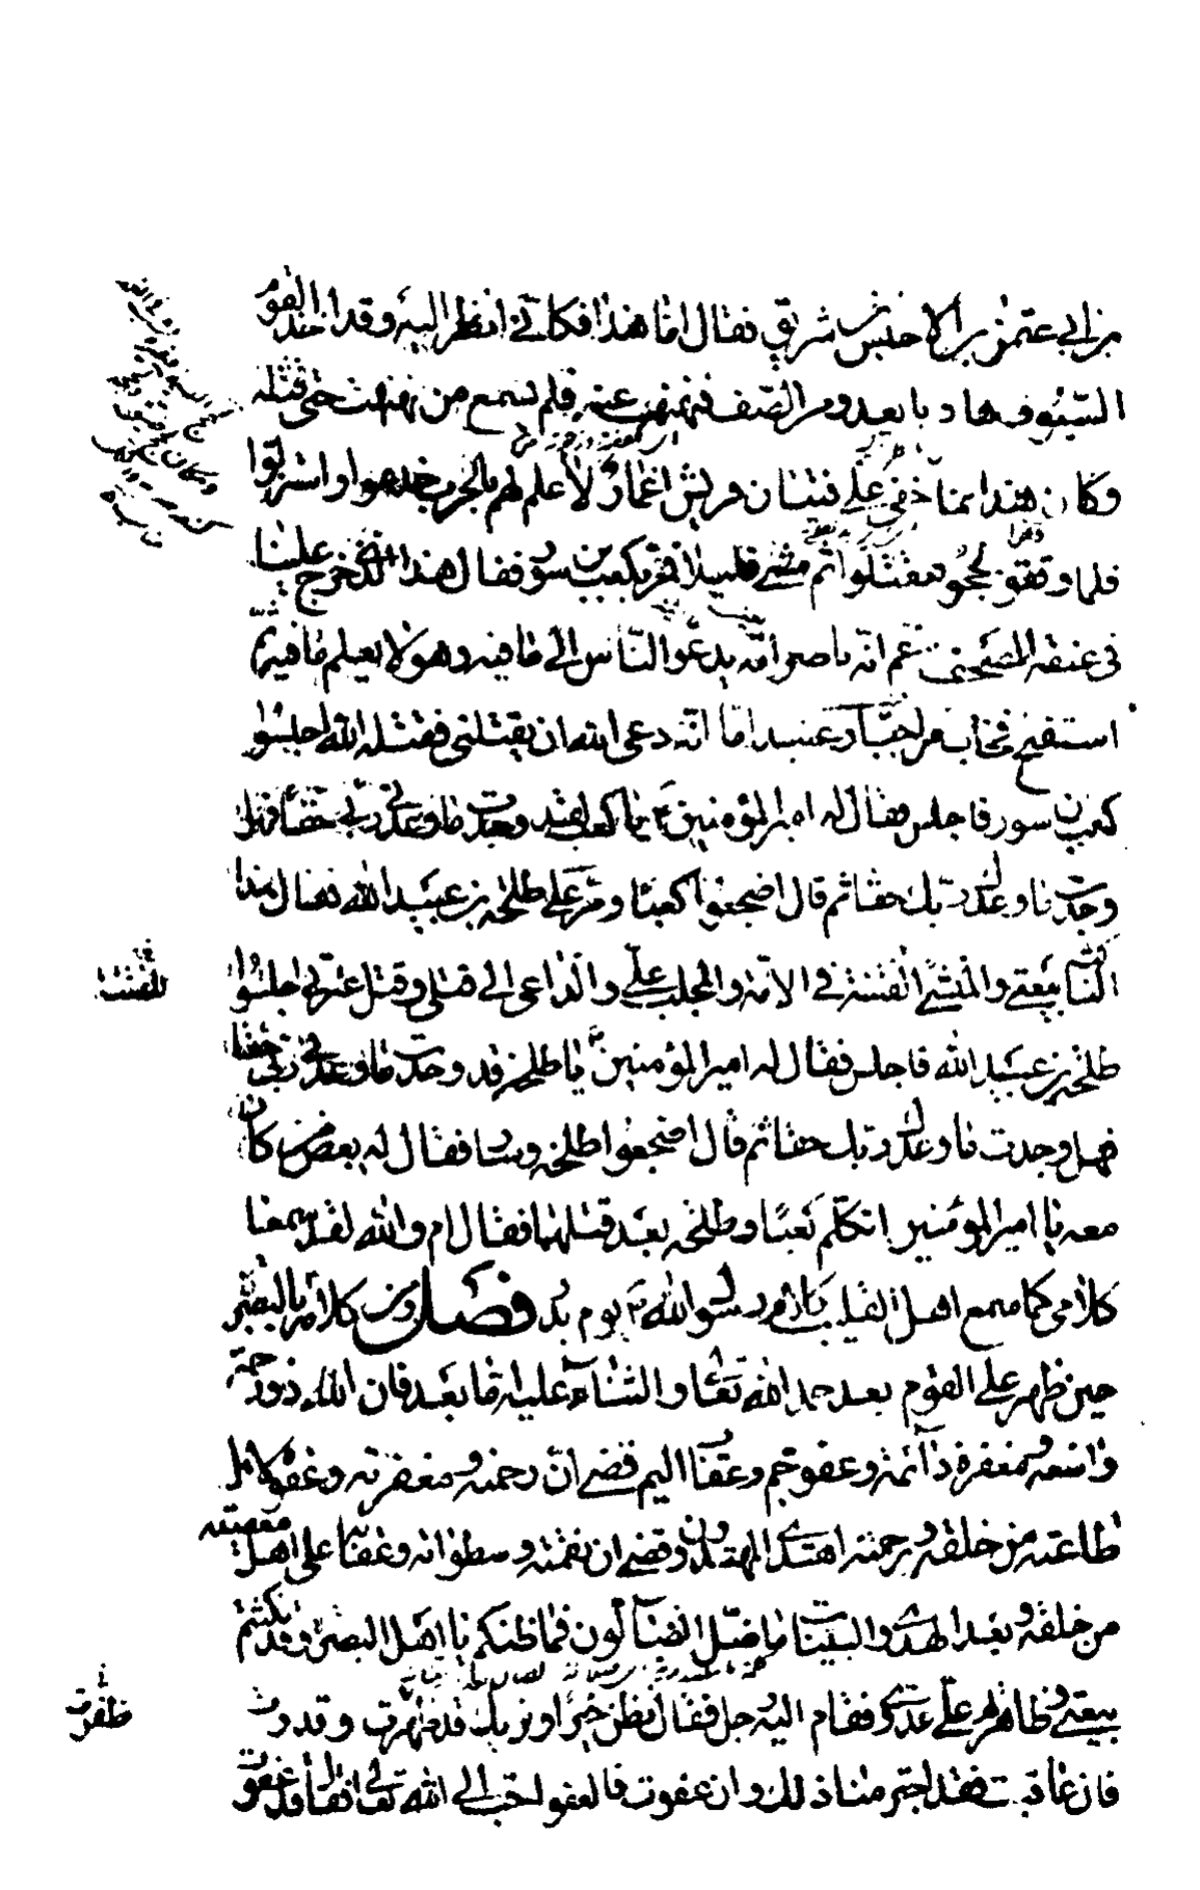 بن ابي عتمن بن الاخنس بن شريق فقال اما هذا فكانى انظر اليه وقد اخذ القوم
السيوف هاربا يعدو من الصف فنهنهت عنه فلم يسمع من نهنهت حتى قتله
وكان هذا مما خفى على فتيان قريش اغمار لا علم لهم بالحرب خدعوا واستزلوا
فلما وقفوا لحجوا فقتلوا ثم مشى قليلا فمر بكعب بن سور فقال هذا الذى خرج علينا
فى عنقه المصحف يزعم انه ناصر امه يدعو الناس الى ما فيه وهو لا يعلم ما فيه ثم
استفتح فخاب كل جبار عنيد اما انه دعى الله ان يقتلنى فقتله الله اجلسوا
كعب بن سور فاجلس فقال له امير المؤمنين ع يا كعب لقد وجدت ما وعدنى ربى حقا فهل
وجدت ما وعدك ربك حقا ثم قال اضجعوا كعبا ومر على طلحة بن عبيد الله فقال هذا
الناكث بيعتى والمنشى الفتنة فى الامة والمجلب على والداعى الى قتلى وقتل عترتى اجلسوا
للفتنة
طلحة بن عبيد الله فاجلس فقال له امير المؤمنين ع يا طلحة قد وجدت ما وعدنى ربى حقا
فهل وجدت ما وعدك ربك حقا ثم قال اضجعوا طلحة وسار فقال له بعض من كان
معه يا امير المؤمنين اتكلم كعبا وطلحة بعد قتلهما فقال ام والله لقد سمعا
كلامى كما سمع اهل القليب كلام رسول الله ص يوم بدر فصل ومن كلامه بالبصرة
حين ظهر على القوم بعد حمد الله تعالى والثناء عليه اما بعد فان الله ذو رحمة
واسعة ومغفرة دائمة وعفو جم وعقاب اليم قضى ان رحمته ومغفرته وعفوه لاهل
طاعته من خلقه وبرحمته اهتدى المهتدون وقضى ان نقمته وسطواته وعقابه على اهل معصيته
من خلقه وبعد الهدى والبينات ما ضل الضالون فما ظنكم يا اهل البصرة وقد نكثتم
بيعتى وظاهرتم على عدوى فقام اليه رجل فقال نظن خيرا ونريك قد ظهرت وقدرت
ظفرت
فان عاقبت فقد اجترمنا ذلك وان عفوت فالعفو احب الى الله تعالى فقال قد عفوت